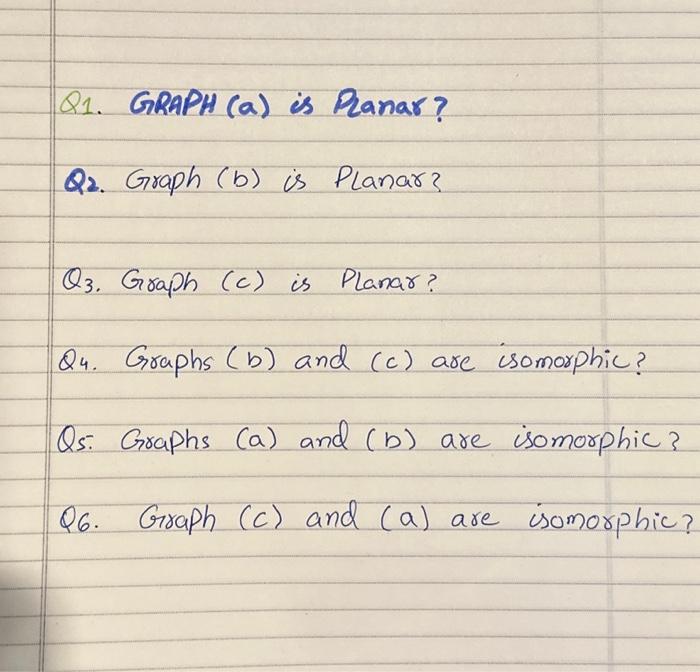 Q1. GRAPH (a) is Planar?
Q2. Graph (b) is Planar?
Q3. Graph (c) is Planar?
Q4. Graphs (b) and (c) are isomorphic?
Q5. Graphs (a) and (b) are isomorphic?
Q6. Graph (c) and (a) are isomorphic?